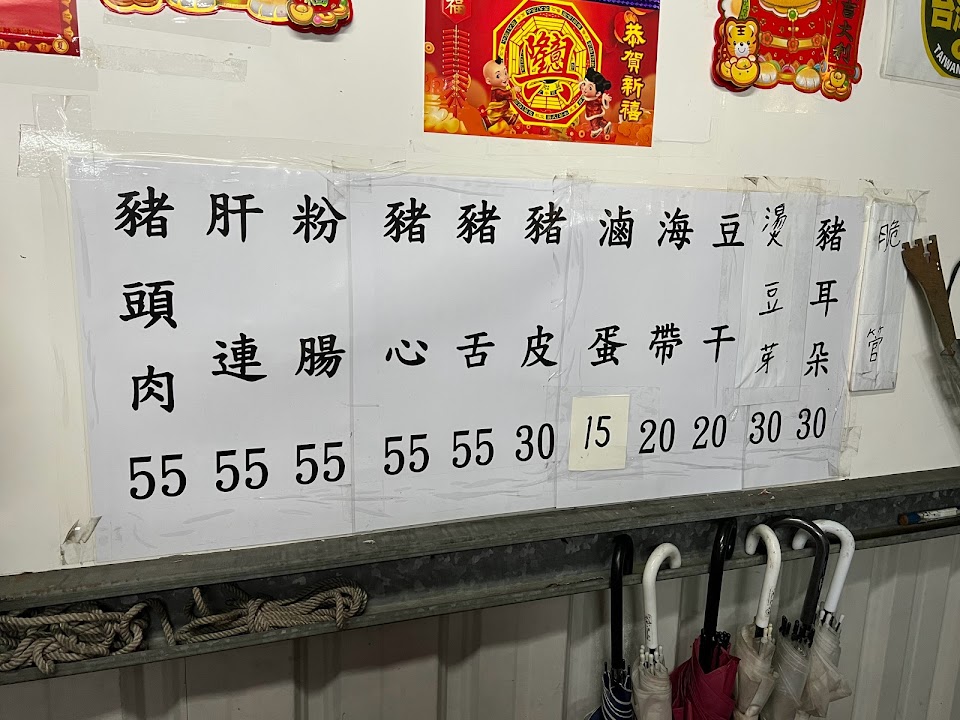 福
恭賀新禧
大利
台灣
TAIWAN
豬頭肉 55
肝連 55
粉腸 55
豬心 55
豬舌 55
豬皮 30
滷蛋 15
海帶 20
豆干 20
燙豆芽 30
豬耳朵 30
脆管